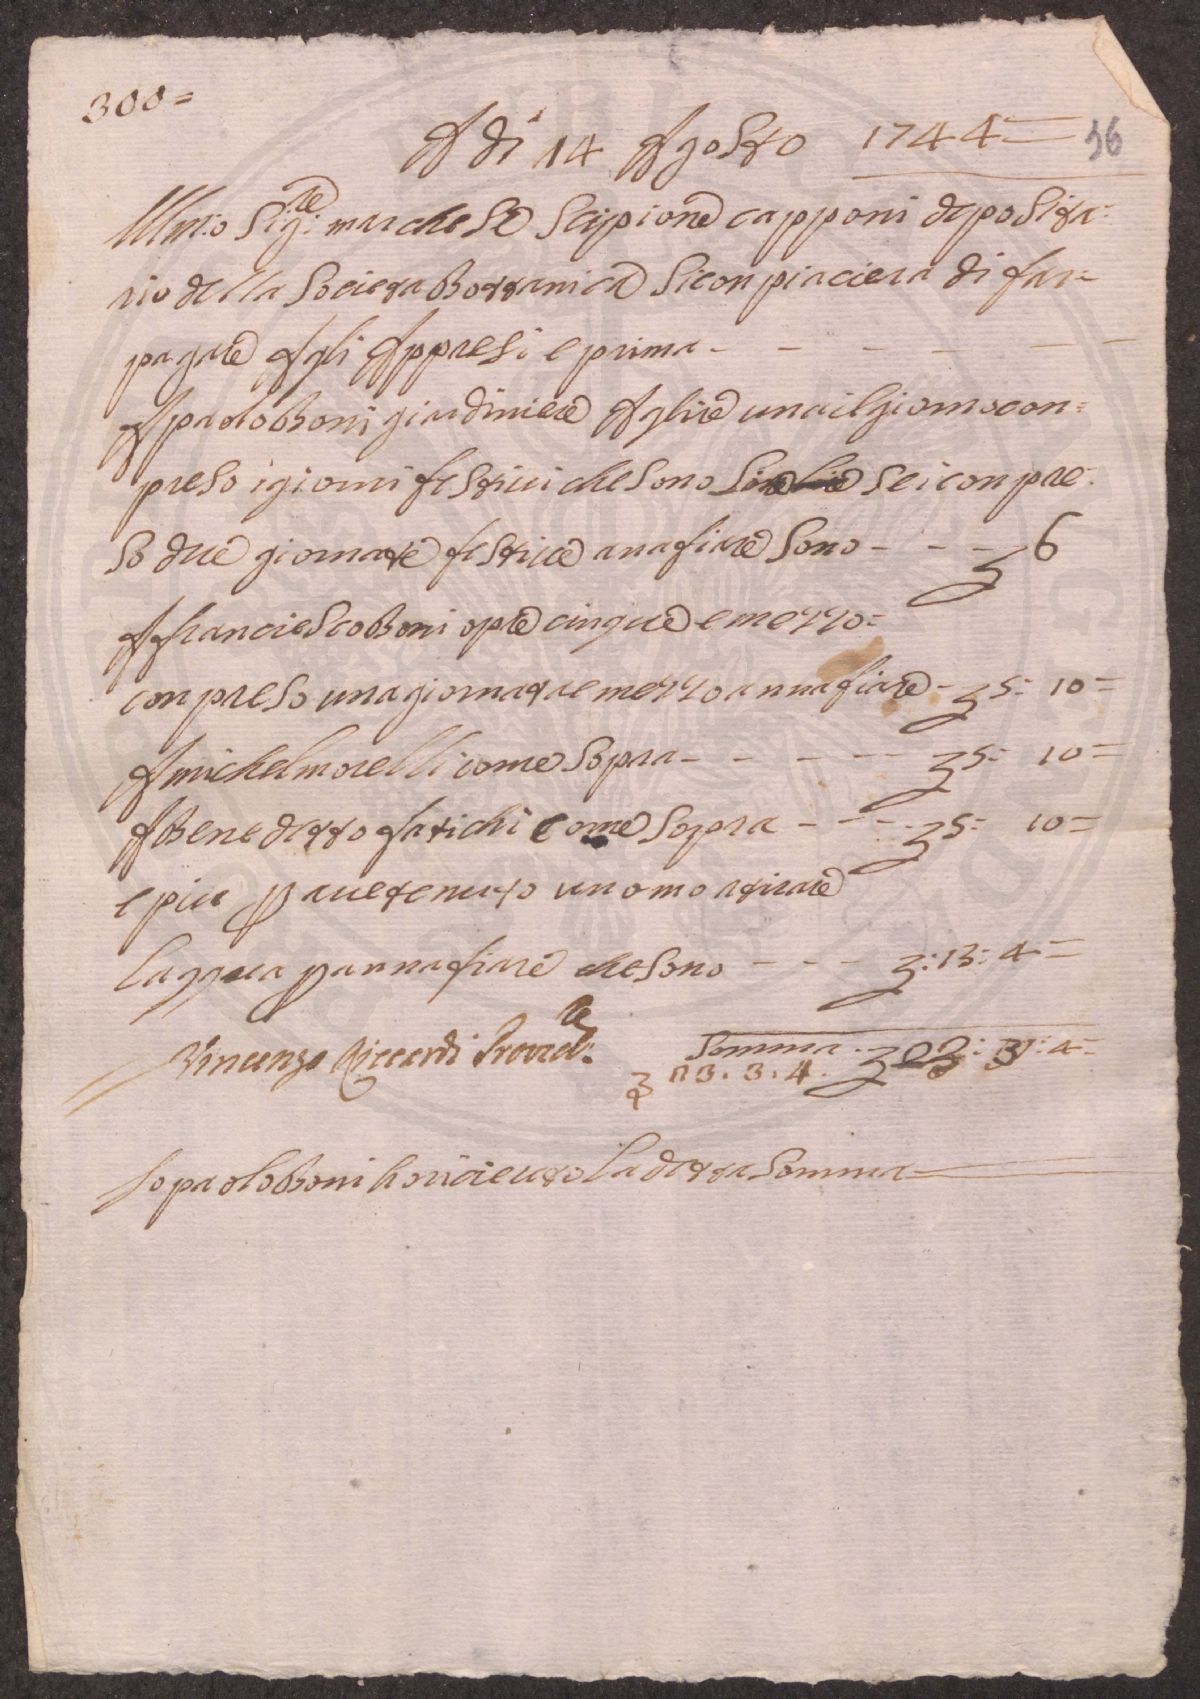 300=
A dì 14 Agosto 1744=
56
Illmo: Sig:re marchese Scipione capponi deposita=
rio della Societa Bottanica Si conpiaciera di far=
pagare Agli Appresi e prima - - - - - -
A paolo Boni giardiniere A lire una il giorno con=
preso i giorni festivi che sono Sei conpre=
so due giornate festive anafiare sono - - - £ 6
A franciesco Boni opre cinque e mezzo=
conpreso una giornata e mezzo annafiare - £ 5: 10=
A michel morelli come Sopra - - - - £ 5: 10=
A Benedetto fatichi come Sopra - - - £ 5: 10=
e piu p avete nuto un omo atirare
lacqua p annafiare che sono - - - £: 13: 4=
Vincenzo Riccardi Provvre:
Somma £ 23: 3: 4=
£ 23. 3. 4.
Io paolo Boni ho riceuto la detta Somma